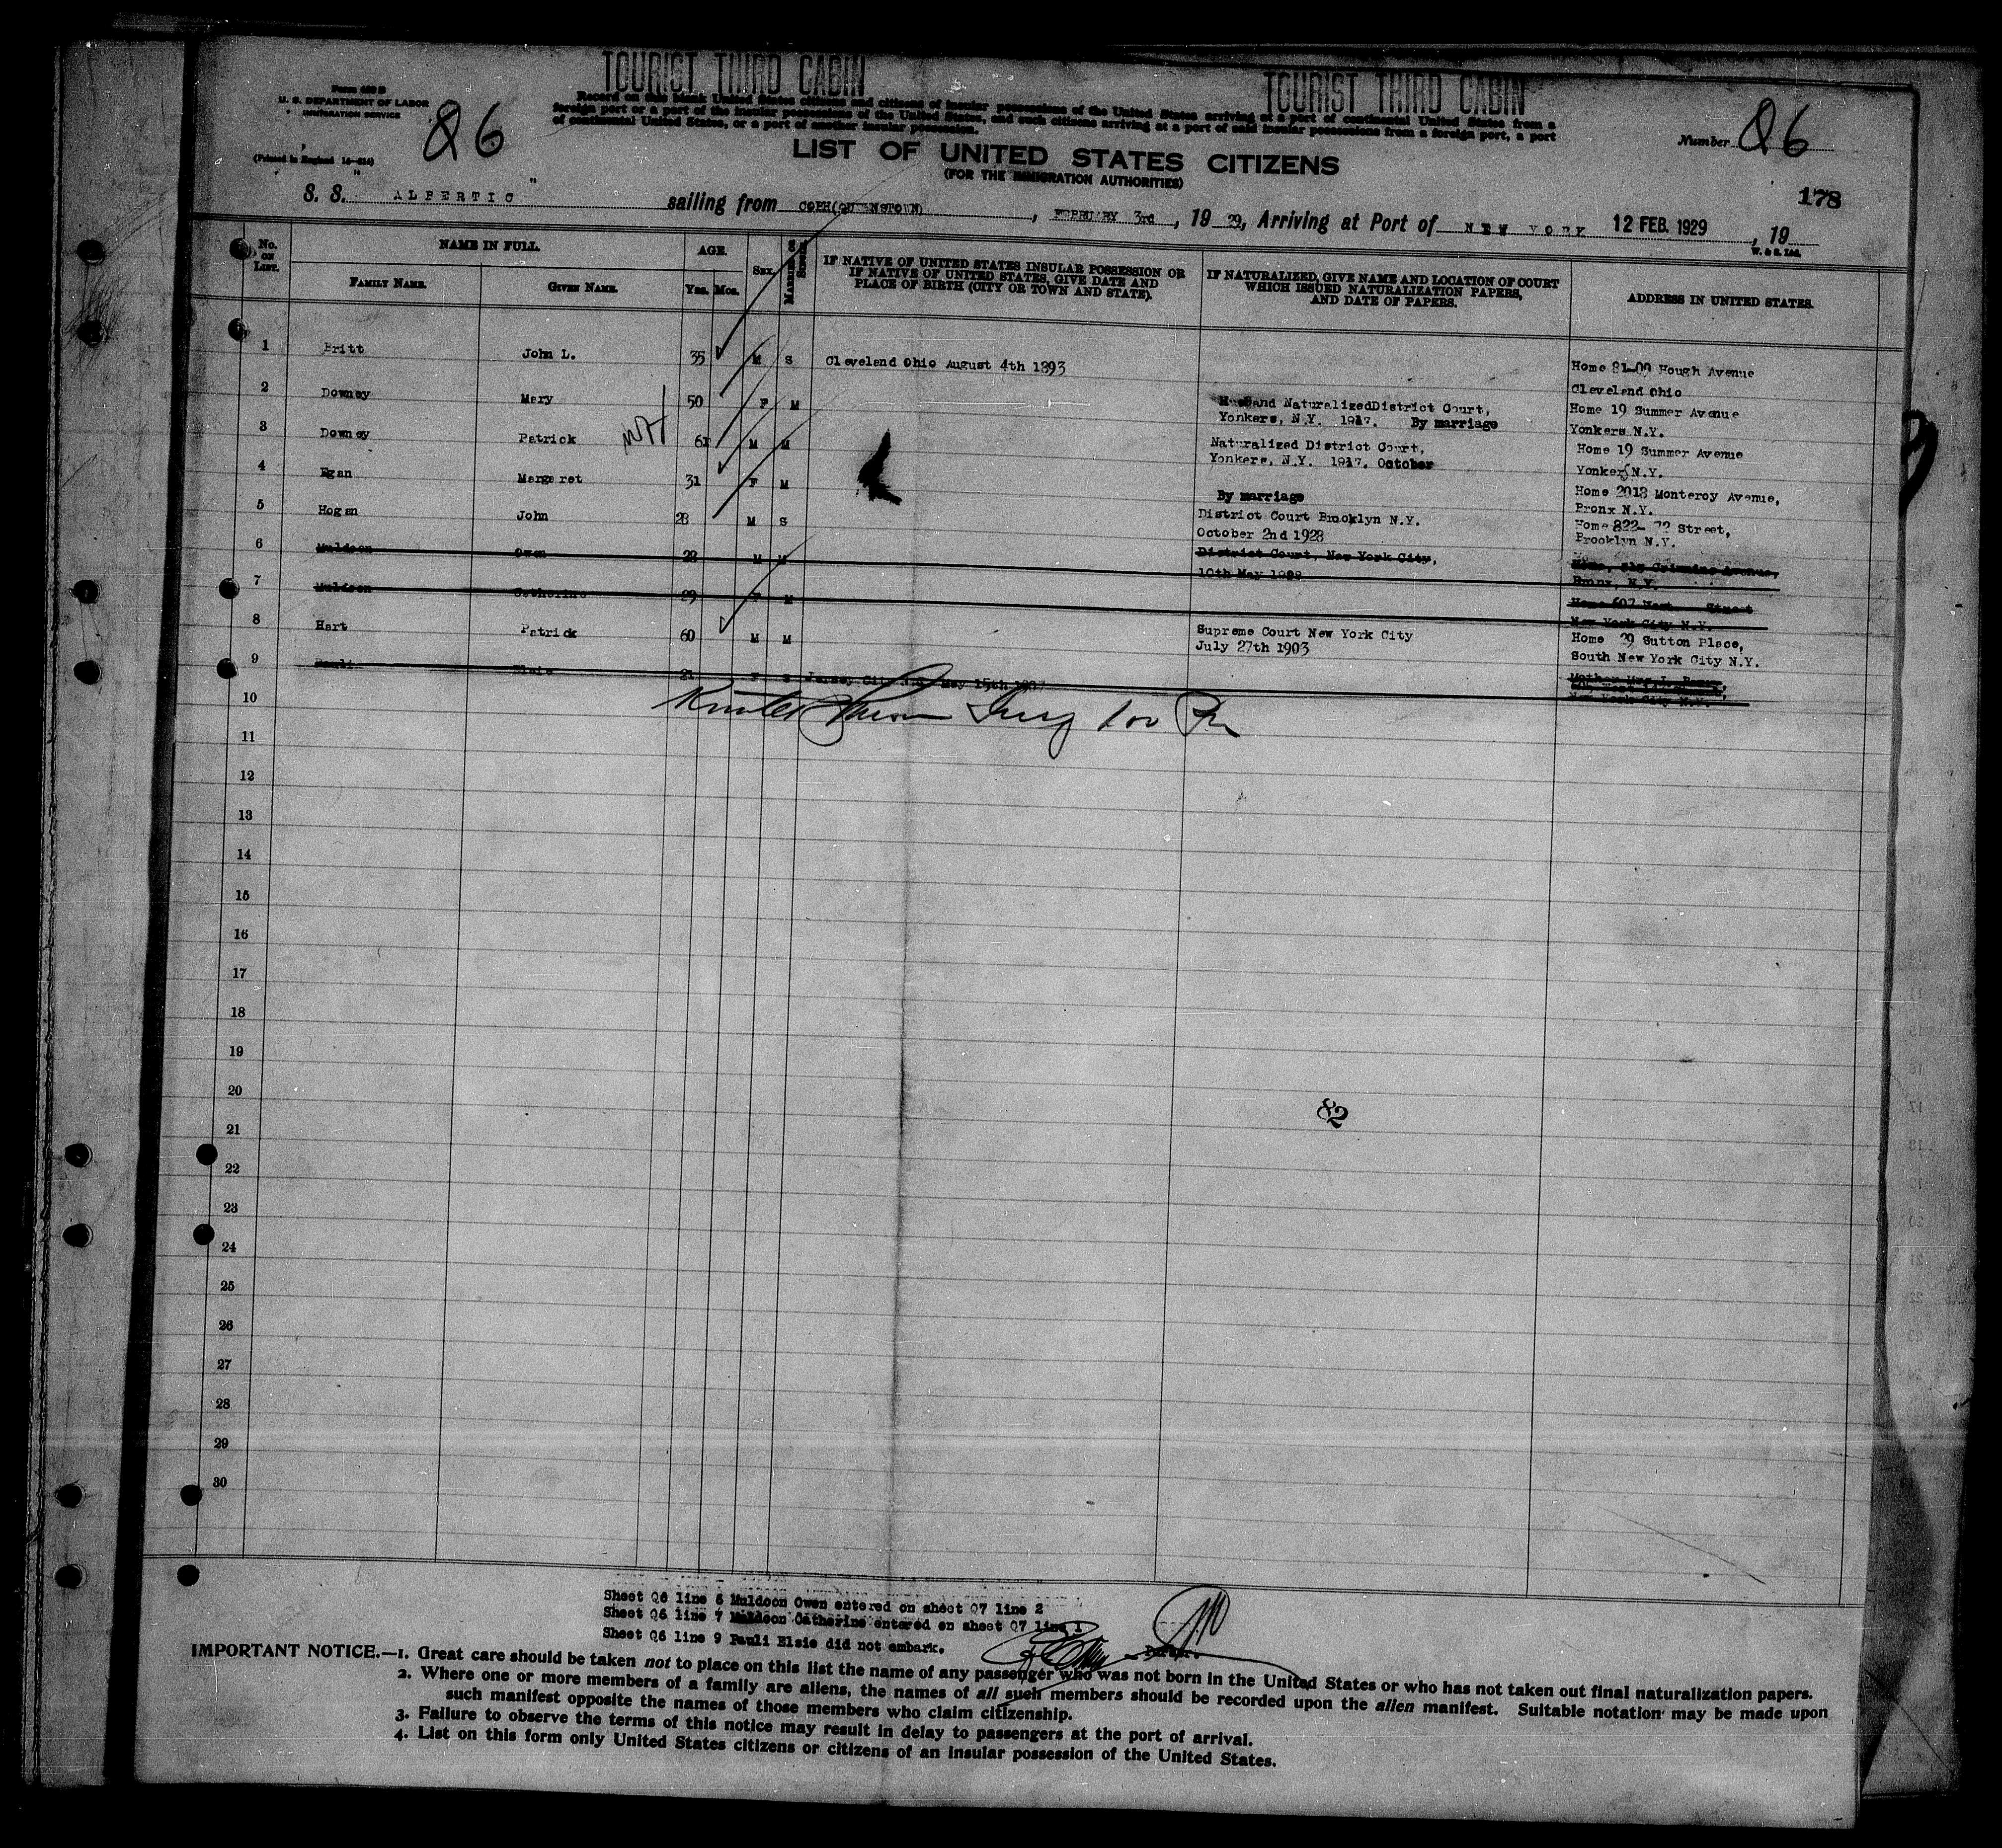 TOURIST THIRD CABIN
TOURIST THIRD CABIN
Form 630 B
U. S. DEPARTMENT OF LABOR
IMMIGRATION SERVICE
Q6
(Printed in England 14—614)
Record on this blank United States citizens and citizens of insular possessions of the United States arriving at a port of continental United States from a
foreign port or a port of the insular possessions of the United States, and such citizens arriving at a port of said insular possessions from a foreign port, a port
of continental United States, or a port of another insular possession.
Number Q6
LIST OF UNITED STATES CITIZENS
(FOR THE IMMIGRATION AUTHORITIES)
178
S. S. ALBERTIC " sailing from COBH(QUEENSTOWN), FEBRUARY 3rd, 19 29, Arriving at Port of NEW YORK 12 FEB. 1929, 19
W. & S. Ltd.
No. ON LIST.
NAME IN FULL.
FAMILY NAME.
GIVEN NAME.
AGE.
Yrs. Mos.
SEX.
MARRIED OR SINGLE
IF NATIVE OF UNITED STATES INSULAR POSSESSION OR
IF NATIVE OF UNITED STATES, GIVE DATE AND
PLACE OF BIRTH (CITY OR TOWN AND STATE).
IF NATURALIZED, GIVE NAME AND LOCATION OF COURT
WHICH ISSUED NATURALIZATION PAPERS,
AND DATE OF PAPERS.
ADDRESS IN UNITED STATES.
1 Britt John L. 35 M S Cleveland Ohio August 4th 1893 Home 81-00 Hough Avenue
Cleveland Ohio
2 Downey Mary 50 F M Husband NaturalizedDistrict Court, Home 19 Summer Avenue
Yonkers, N.Y. 1917. By marriage Yonkers N.Y.
3 Downey Patrick 61 M M Naturalized District Court, Home 19 Summer Avenue
Yonkers, N.Y. 1917. October Yonkers N.Y.
4 Egan Margaret 31 F M By marriage Home 2013 Monteroy Avenue,
Bronx N.Y.
5 Hogan John 28 M S District Court Brooklyn N.Y. Home 822- 72 Street,
October 2nd 1928 Brooklyn N.Y.
6 Muldoon Owen 28 M M District Court, New York City,
10th May 1928 Bronx, N.Y.
7 Muldoon Catherine 29 F M Home 607 West Street
New York City N.Y.
8 Hart Patrick 60 M M Supreme Court New York City Home 29 Sutton Place,
July 27th 1903 South New York City N.Y.
9 Pauli Elsie 21 F S Jersey City N.J. May 15th
New York City N.Y.
10
11
12
13
14
15
16
17
18
19
20
82
21
22
23
24
25
26
27
28
29
30
Sheet Q6 line 6 Muldoon Owen entered on sheet Q7 line 2
Sheet Q6 line 7 Muldoon Catherine entered on sheet Q7 line 1
Sheet Q6 line 9 Pauli Elsie did not embark.
IMPORTANT NOTICE.—1. Great care should be taken not to place on this list the name of any passenger who was not born in the United States or who has not taken out final naturalization papers.
2. Where one or more members of a family are aliens, the names of all such members should be recorded upon the alien manifest. Suitable notation may be made upon
such manifest opposite the names of those members who claim citizenship.
3. Failure to observe the terms of this notice may result in delay to passengers at the port of arrival.
4. List on this form only United States citizens or citizens of an insular possession of the United States.